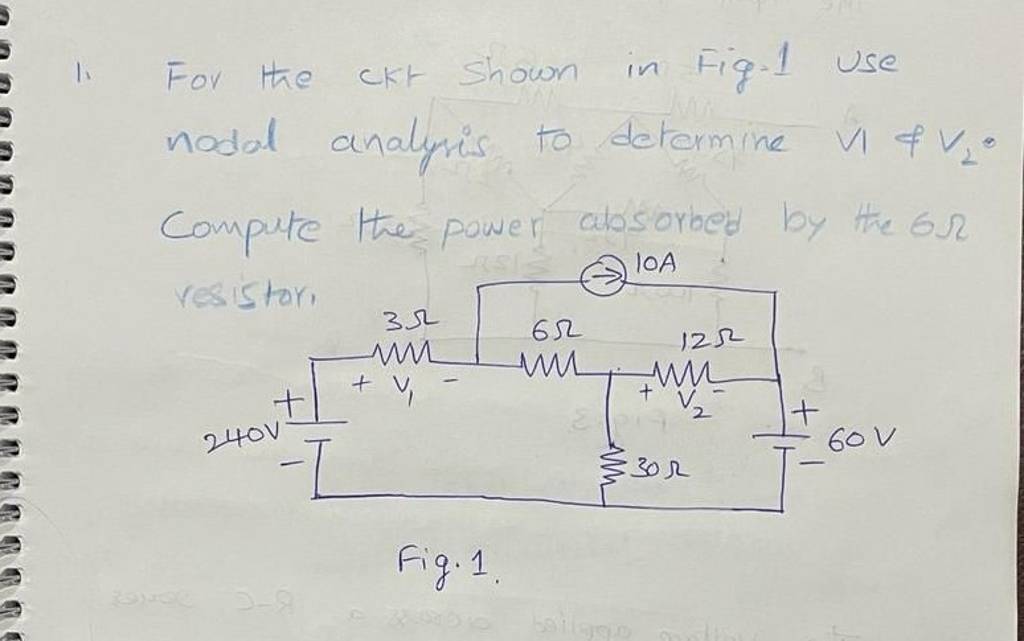 1. For the ckt shown in Fig.1 use
nodal analysis to determine V1 & V₂.
Compute the power absorbed by the 6Ω
resistor.
10A
3Ω
6Ω
12Ω
+ V₁ -
+ V₂ -
+
240V
-
30Ω
+
60V
-
Fig.1.